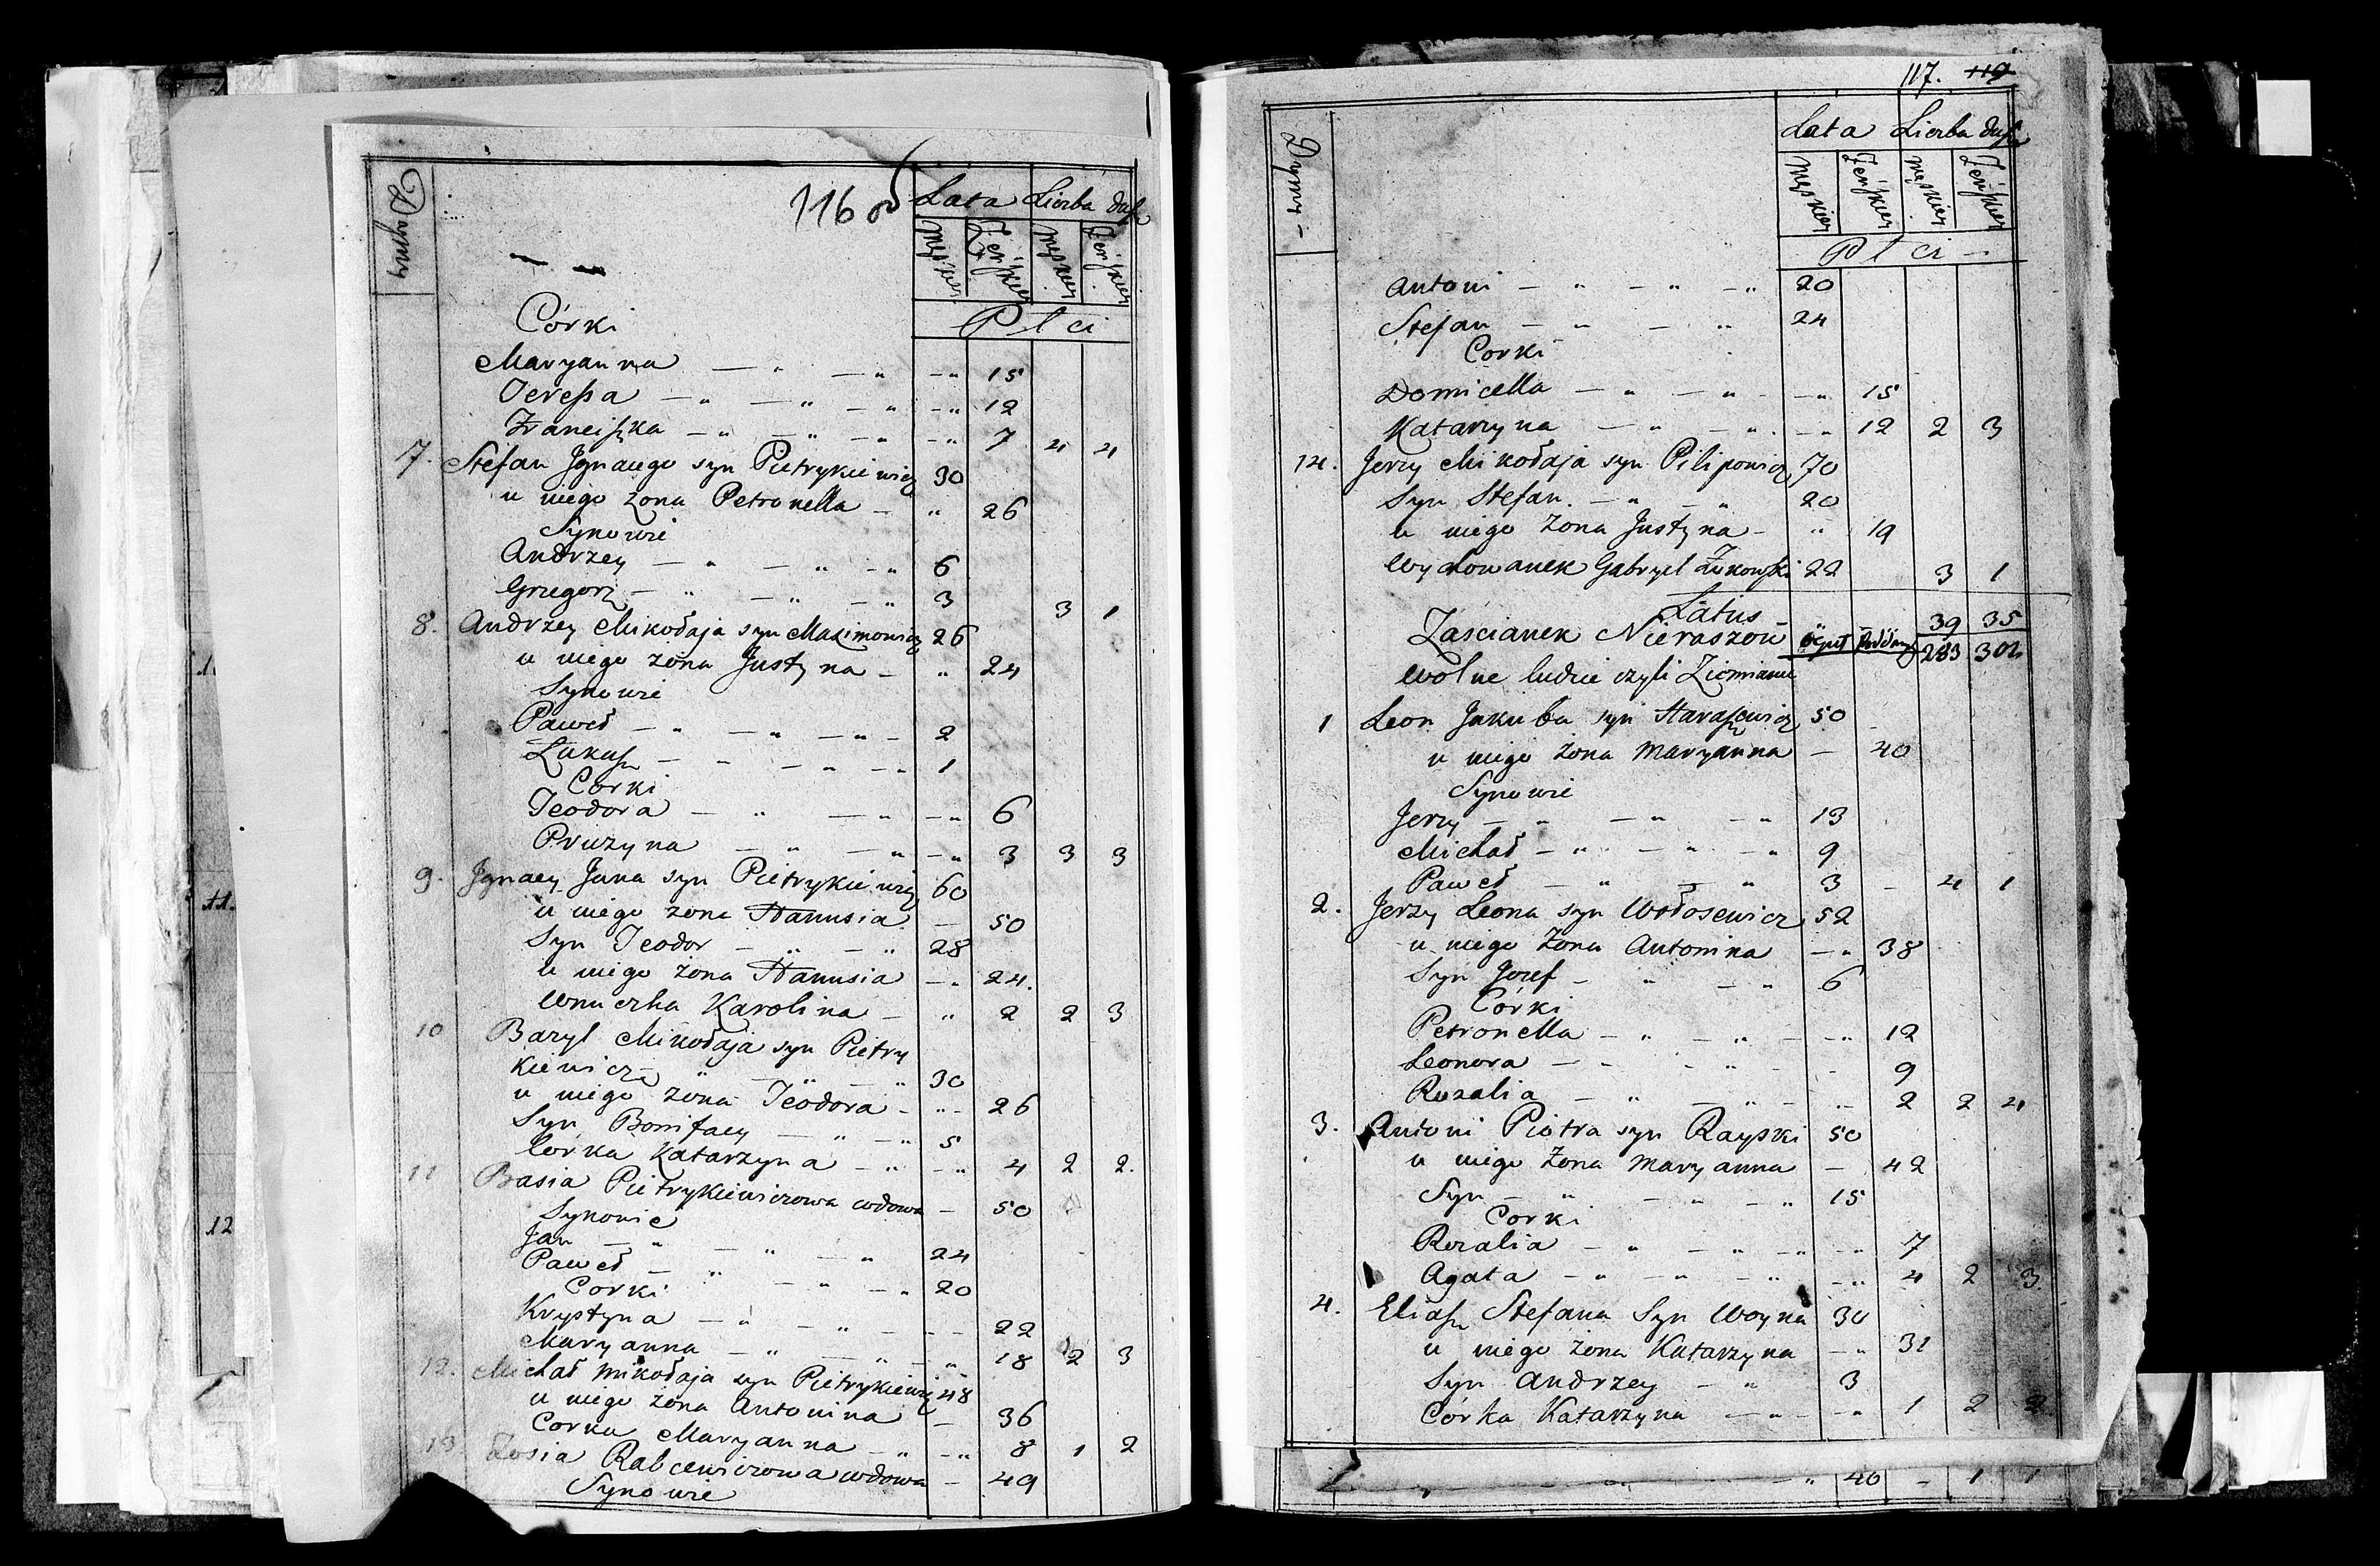 116 od
Dymy
Lata Liczba dusz
męskiey Żeńskiey męskiey Żeńskiey
Płci
Córki
Maryanna — " — " — " 15
Teressa — " — " — " — " 12
Franciszka — " — " — " — " 7 4 4
7. Stefan Jgnacego syn Pietrykiewicz 30
u niego żona Petronella — " 26
Synowie
Andrzey — " — " — " 6
Grzegorz — " — " — " 3 3 1
8. Andrzey Mikołaja syn Maximowicz 26
u niego żona Justyna — " 24
Synowie
Paweł — " — " — " — 2
Łukasz — " — " — " 1
Corki
Teodora — " — " — " 6
Pruzyna — " — " — " 3 3 3
9. Jgnacy Jana syn Pietrykiewicz 60
u niego żona Hanusia — 50
Syn Teodor — " — " 28
u niego żona Hanusia — " 24.
Wnuczka Karolina — " 2 2 3
10 Bazyl Mikołaja syn Pietry
kiewicz — " — " — " 30
u niego żona Teodora — " — 26
Syn Bonifacy — " — " 5
Córka Katarzyna — " — " 4 2 2.
11 Basia Pietrykiewiczowa wdowa — 50
Synowie
Jan — " — " — " 24
Paweł — " — " — " 20
Corki
Krystyna — " — " — — 22
Maryanna — " — " — " 18 2 3
12. Michał Mikołaja syn Pietrykiewicz 48
u niego żona Antonina — 36
Corka Maryanna — " — " 8 1 2
13 Zosia Rabcewiczowa wdowa — 49
Synowie
11.
12
117. 119
Dymy
Lata Liczba dusz
męskiey Żeńskiey męskiey Żeńskiey
Płci —
Antoni — " — " — " 20
Stefan — " — " 24
Corki
Domicella — " — " — " 15
Katarzyna — " — " — " 12 2 3
14. Jerzy Mikołaja syn Pilipowicz 70
Syn Stefan — " — " 20
u niego żona Justyna — " 19
Wychowanek Gabryel Żukowski 22 3 1
Latus — 39 35
Zaścianek Nieraszow 283 304
Wolne ludzie czyli Ziemianie
1 Leon Jakuba syn Harasewicz 50
u niego żona Maryanna — 40
Synowie
Jerzy — " — " — " 13
Michał — " — " — " 9
Paweł — " — " 3 — 4 1
2. Jerzy Leona syn Wołosewicz 52
u niego Żona Antonina — " 38
Syn Jozef — " — " 6
Córki
Petronella — " — " — — " 12
Leonora — — " — 9
Rozalia — " — " — " 2 2 4
3. Antoni Piotra syn Rayski 50
u niego Żona Maryanna — 42
Syn — " — " — " 15
Corki
Rozalia — " — " — " — " 7
Agata — " — " — " — " 4 2 3.
4. Eliasz Stefana Syn Woyna 30
u niego żona Katarzyna — " 31
Syn Andrzey — " 3
Córka Katarzyna — " — — " 1 2 2
" 40 — 1 1